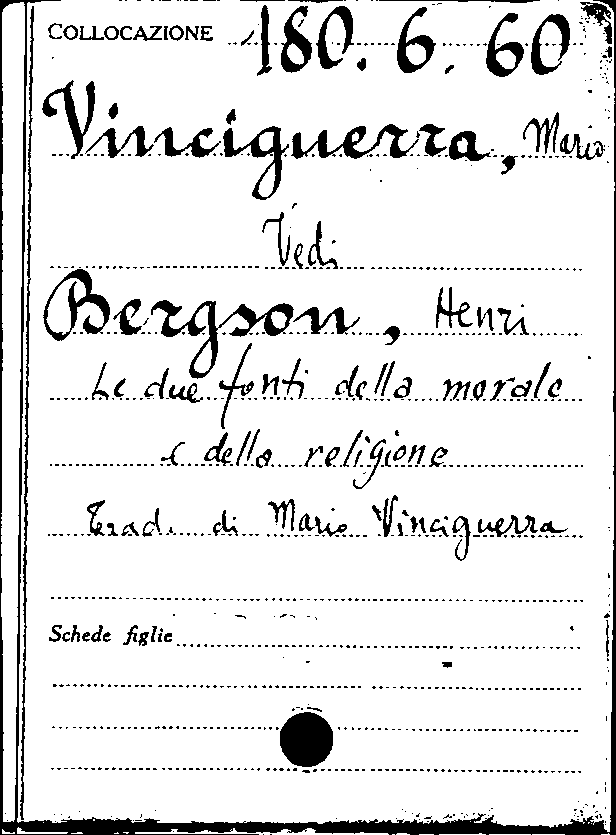 COLLOCAZIONE 180. 6. 60
Vinciguerra, Mario
Vedi
Bergson, Henri
Le due fonti della morale
e della religione
Trad. di Mario Vinciguerra
Schede figlie